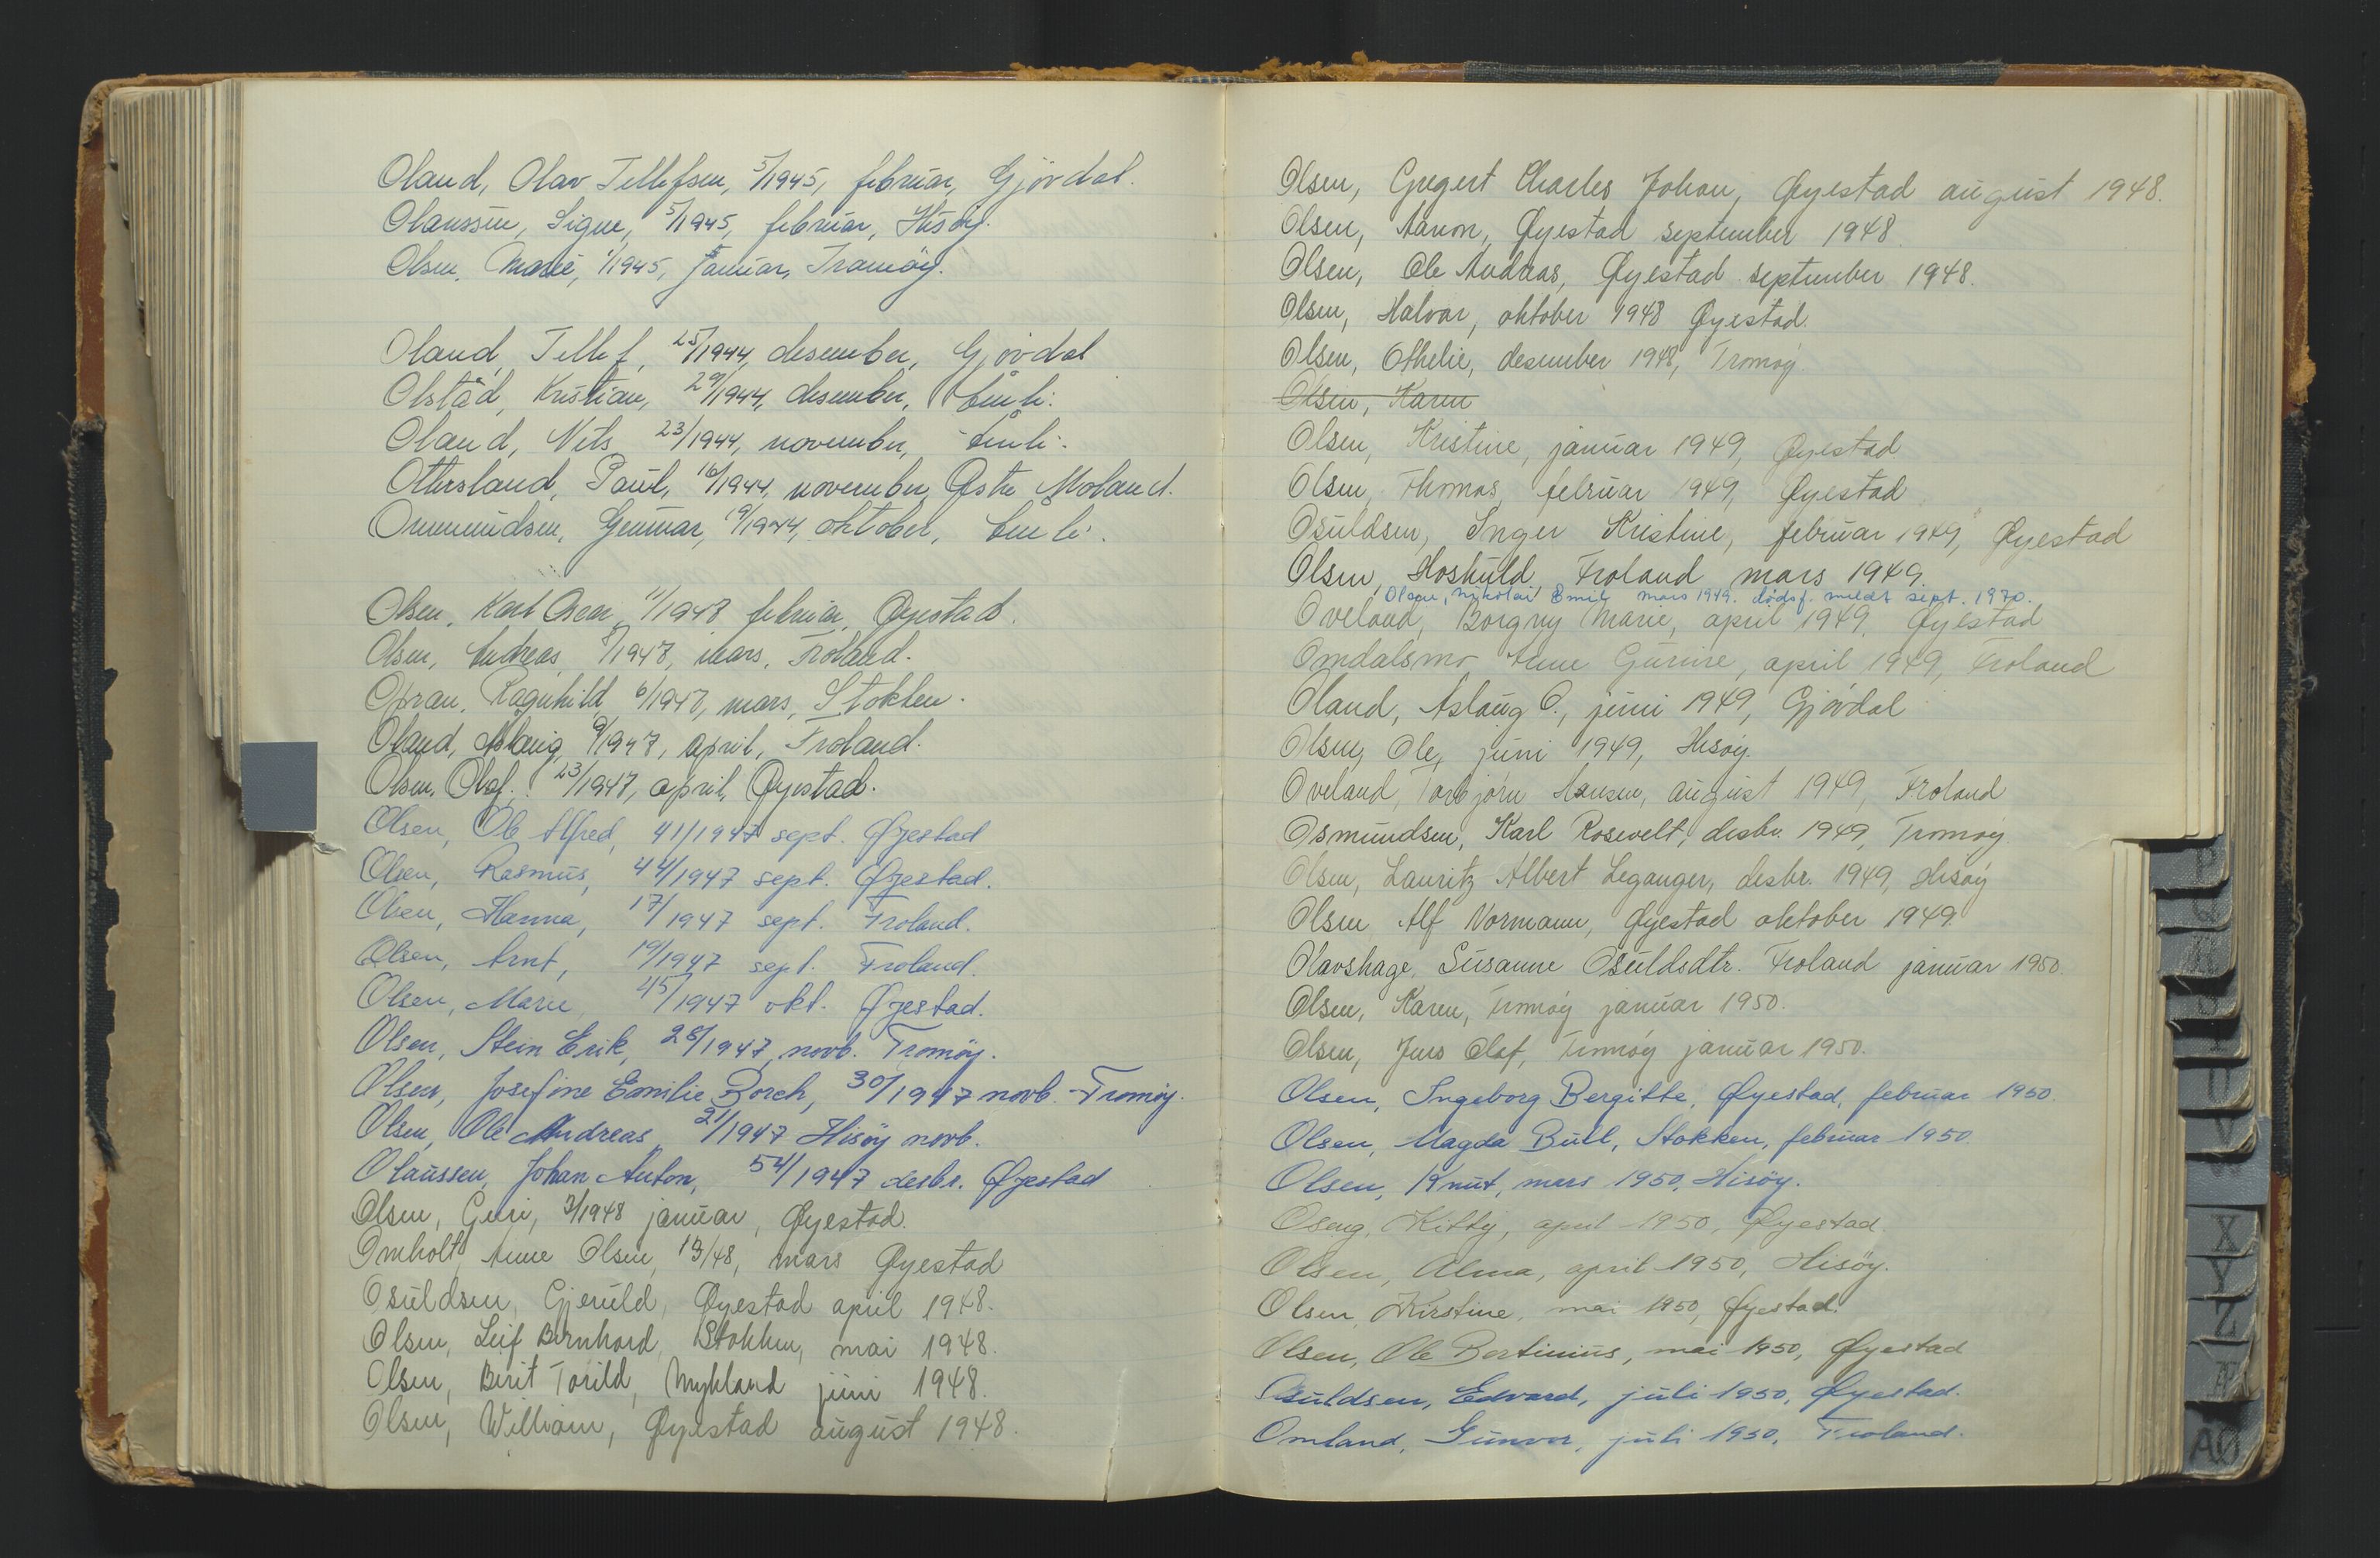 Oland, Olav Tellefsen, 5/1945, februar, Gjövdal.
Olaussen, Signe, 5/1945, februar, Hisöy.
Olsen, Marie, 1/1945, januar, Tromöy.
Oland, Tellef, 25/1944, desember, Gjövdal
Olstad, Kristian, 29/1944, desember, Åmli.
Oland, Nils 23/1944, november, Åmli.
Ottersland, Paul, 16/1944, november, Østre Moland.
Ommundsen, Gunnar, 19/1944, oktober, Åmli.
Olsen, Karl Oscar, 11/1948 februar, Øyestad.
Olsen, Andreas, 8/1947, mars, Froland.
Opran, Ragnhild, 6/1947, mars, Stokken.
Oland, Aslaug, 9/1947, april, Froland.
Olsen, Olaf. 23/1947, april, Øyestad.
Olsen, Ole Alfred, 41/1947 sept. Øyestad
Olsen, Rasmus, 44/1947 sept. Øyestad.
Olsen, Hanna, 17/1947 sept. Froland.
Olsen, Arnt, 19/1947 sept. Froland.
Olsen, Marie, 45/1947 okt. Øyestad.
Olsen, Stein Erik, 28/1947, novb. Tromöy.
Olsen, Josefine Emilie Borch, 30/1947 novb. Tromöy.
Olsen, Ole Andreas, 21/1947 Hisöy novb.
Olaussen, Johan Anton, 54/1947 desbr. Øyestad
Olsen, Guri, 3/1948 januar, Øyestad.
Omholt, Anne Olsen, 13/48, mars Øyestad
Osuldsen, Gjeruld, Øyestad april 1948.
Olsen, Leif Bernhard, Stokken, mai 1948.
Olsen, Berit Torild, Mykland juni 1948.
Olsen, William, Øyestad august 1948.
Olsen, Gregert Charles Johan, Øyestad august 1948.
Olsen, Aanon, Øyestad september 1948.
Olsen, Ole Andreas, Øyestad september 1948.
Olsen, Halvor, oktober 1948 Øyestad.
Olsen, Othelie, desember 1948, Tromöy
Olsen, Karen
Olsen, Kristine, januar 1949, Øyestad
Olsen, Thomas, februar 1949, Øyestad
Osuldsen, Inger Kristine, februar 1949, Øyestad
Olsen, Hoskuld, Froland mars 1949.
Olsen, Nikolai Emil mars 1949. dødsf. meldt sept. 1970.
Oveland, Borgny Marie, april 1949, Øyestad
Omdalsmo Anne Gurine, april 1949, Froland
Oland, Aslaug O., juni 1949, Gjövdal
Olsen, Ole, juni 1949, Hisöy.
Oveland, Torbjörn Hansen, august 1949, Froland
Osmundsen, Karl Rosevelt, desbr. 1949, Tromöy
Olsen, Lauritz Albert Leganger, desbr. 1949, Hisöy
Olsen, Alf Normann, Øyestad oktober 1949
Olavshage, Susanne Osuldsdtr. Froland januar 1950.
Olsen, Karen, Tromöy januar 1950.
Olsen, Jens Olaf, Tromöy januar 1950.
Olsen, Ingeborg Bergitte, Øyestad, februar 1950.
Olsen, Magda Bull, Stokken, februar 1950.
Olsen, Knut, mars 1950, Hisöy.
Oseng, Kitty, april 1950, Øyestad.
Olsen, Alma, april 1950, Hisöy.
Olsen, Kirstine, mai 1950, Øyestad.
Olsen, Ole Bertinius, mai 1950, Øyestad
Osuldsen, Edvard, juli 1950, Øyestad.
Omland, Gunvor, juli 1950, Froland.
P
Q
R
S
T
U
V
X
Y
Z
Æ